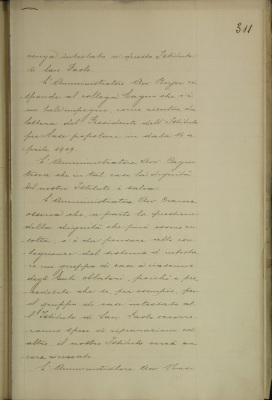 311
venga intestato a questo Istituto
di San Paolo.
L'Amministratore Avv. ri-
sponde al collega che vi è
un tale impegno, come risulta da
lettera del Presidente dell'Istituto
per Case popolari in data 16
aprile 1909.
L'Amministratore Avv.
che in tal caso la dignità
del nostro Istituto è salva.
L'Amministratore Avv.
osserva che, a parte la questione
della dignità che può essere
è da pensare alle con-
seguenze del sistema d'intesta-
re un gruppo di case a ciascuno
degli Enti oblatori, poichè è pre-
vedibile che se per esempio, per
il gruppo di case intestato al-
l'Istituto di San Paolo occorre-
ranno spese di riparazioni od
altro, il nostro Istituto
L'Amministratore Avv.